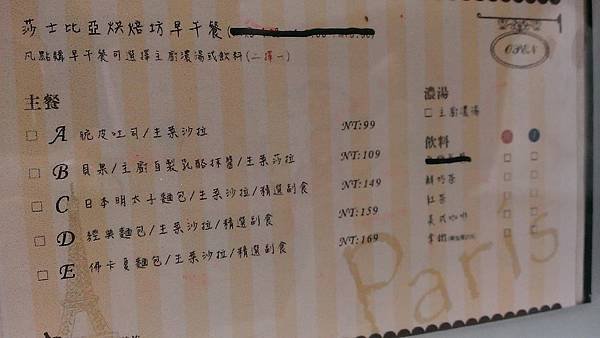 莎士比亞烘焙坊早午餐
OPEN
凡點購早午餐可選擇主廚濃湯或飲料(二擇一)
主餐
A 脆皮吐司/生菜沙拉 NT:99
B 貝果/主廚自製乳酪抹醬/生菜莎拉 NT:109
C 日本明太子麵包/生菜沙拉/精選副食 NT:149
D 經典麵包/生菜沙拉/精選副食 NT:159
E 佛卡夏麵包/生菜沙拉/精選副食 NT:169
濃湯
主廚濃湯
飲料
鮮奶茶
紅茶
美式咖啡
拿鐵
Paris